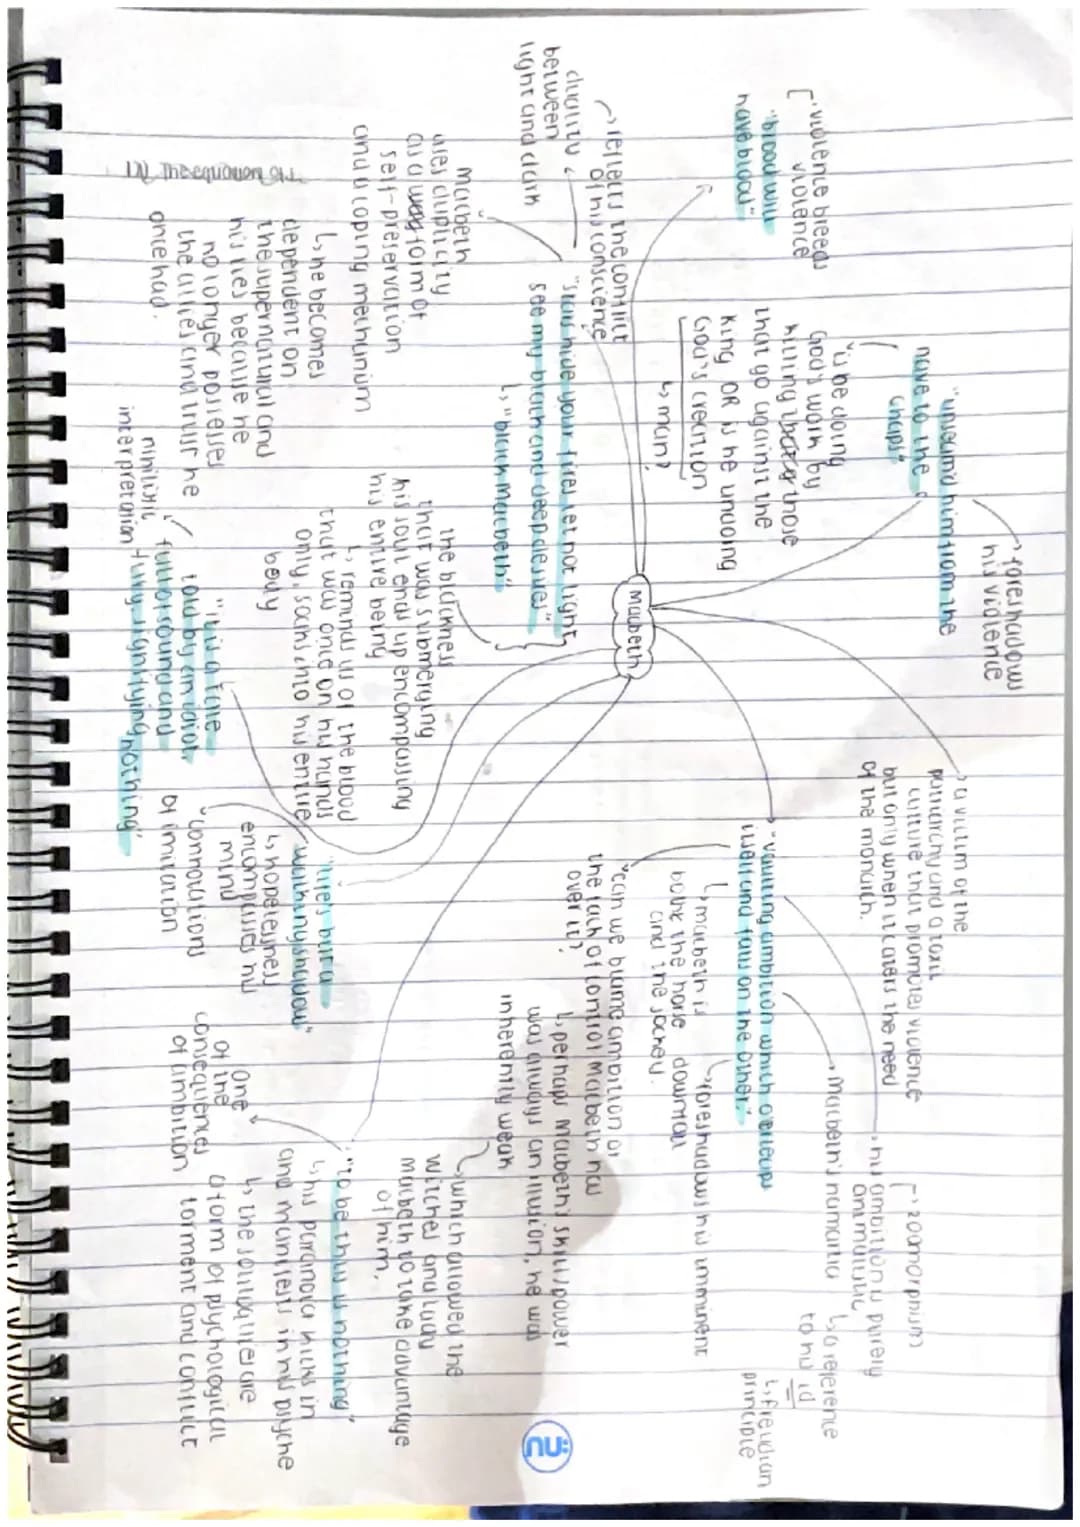 ["violence breeds
violence
"blood will
have blood"
"unseam'd him from the
nave to the
chaps"
→ foreshadows
his violence
is he doing
God's work by
killing those
that go against the
King OR is he undoing
God's creation
↳ man?
→ a victim of the
patriarchy and a toxic
culture that promotes violence
but only when it caters the need
of the monarch.
"vaulting ambition which overleaps
itself and falls on the other"
↳ macbeth is
both the horse
and the jockey.
↳ foreshadows his imminent
downfall
→ Macbeth's hamartia
→ his ambition is purely
animalistic
[→ zoomorphism
↳ a reference
to his id
↳ freudian
principle
"can we blame ambition or
the lack of control Macbeth has
over it?
↳ perhaps Macbeth's skill/power
was always an illusion, he was
inherently weak
↳ which allowed the
witches and lady
macbeth to take advantage
of him.
Macbeth
→ reflects the conflict
of his conscience
duality
between
light and dark
"stars hide your fires let not light
see my black and deep desires"
↳ "black macbeth"
Macbeth
uses duplicity
as a form of
self-preservation
and a coping mechanism
↳ he becomes
dependent on
the supernatural and
his lies because he
no longer possesses
the allies and trust he
once had.
the blackness
that was submerging
his soul ends up encompassing
his entire being
↳ reminds us of the blood
that was once on his hands
only, soaks into his entire
body
"life's but a
walking shadow"
↳ hopelessness
encompasses his
mind
"connotations
of imitation
"it is a tale
told by an idiot,
full of sound and
fury signifying nothing"
nihilistic
interpretation
"to be thus is nothing"
↳ his paranoia kicks in
and manifests in his psyche
↳ the soliloquies are
a form of psychological
torment and conflict
one
of the
consequences
of ambition